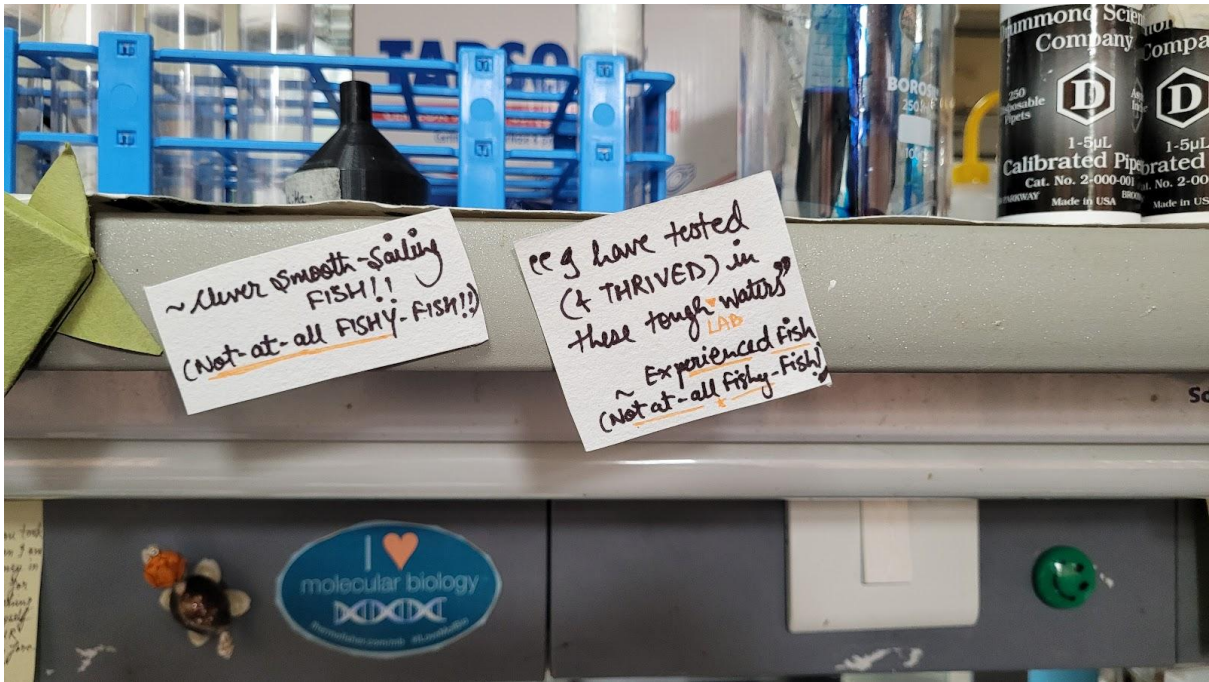 TARSO
BOROSIL
250
Drummond Scientific
Company
250
Disposable
Pipets
D
1-5µL
Calibrated Pipets
Cat. No. 2-000-001
PARKWAY
Made in USA
Compa
D
1-5µL
brated
Cat. No. 2-00
Made in US
~ Clever Smooth-Sailing
FISH!!
(Not-at-all FISHY-FISH!!)
“I have tested
(& THRIVED) in
these tough waters”
LAB
~ Experienced fish
(Not at-all fishy-fish!)
So
I
molecular biology